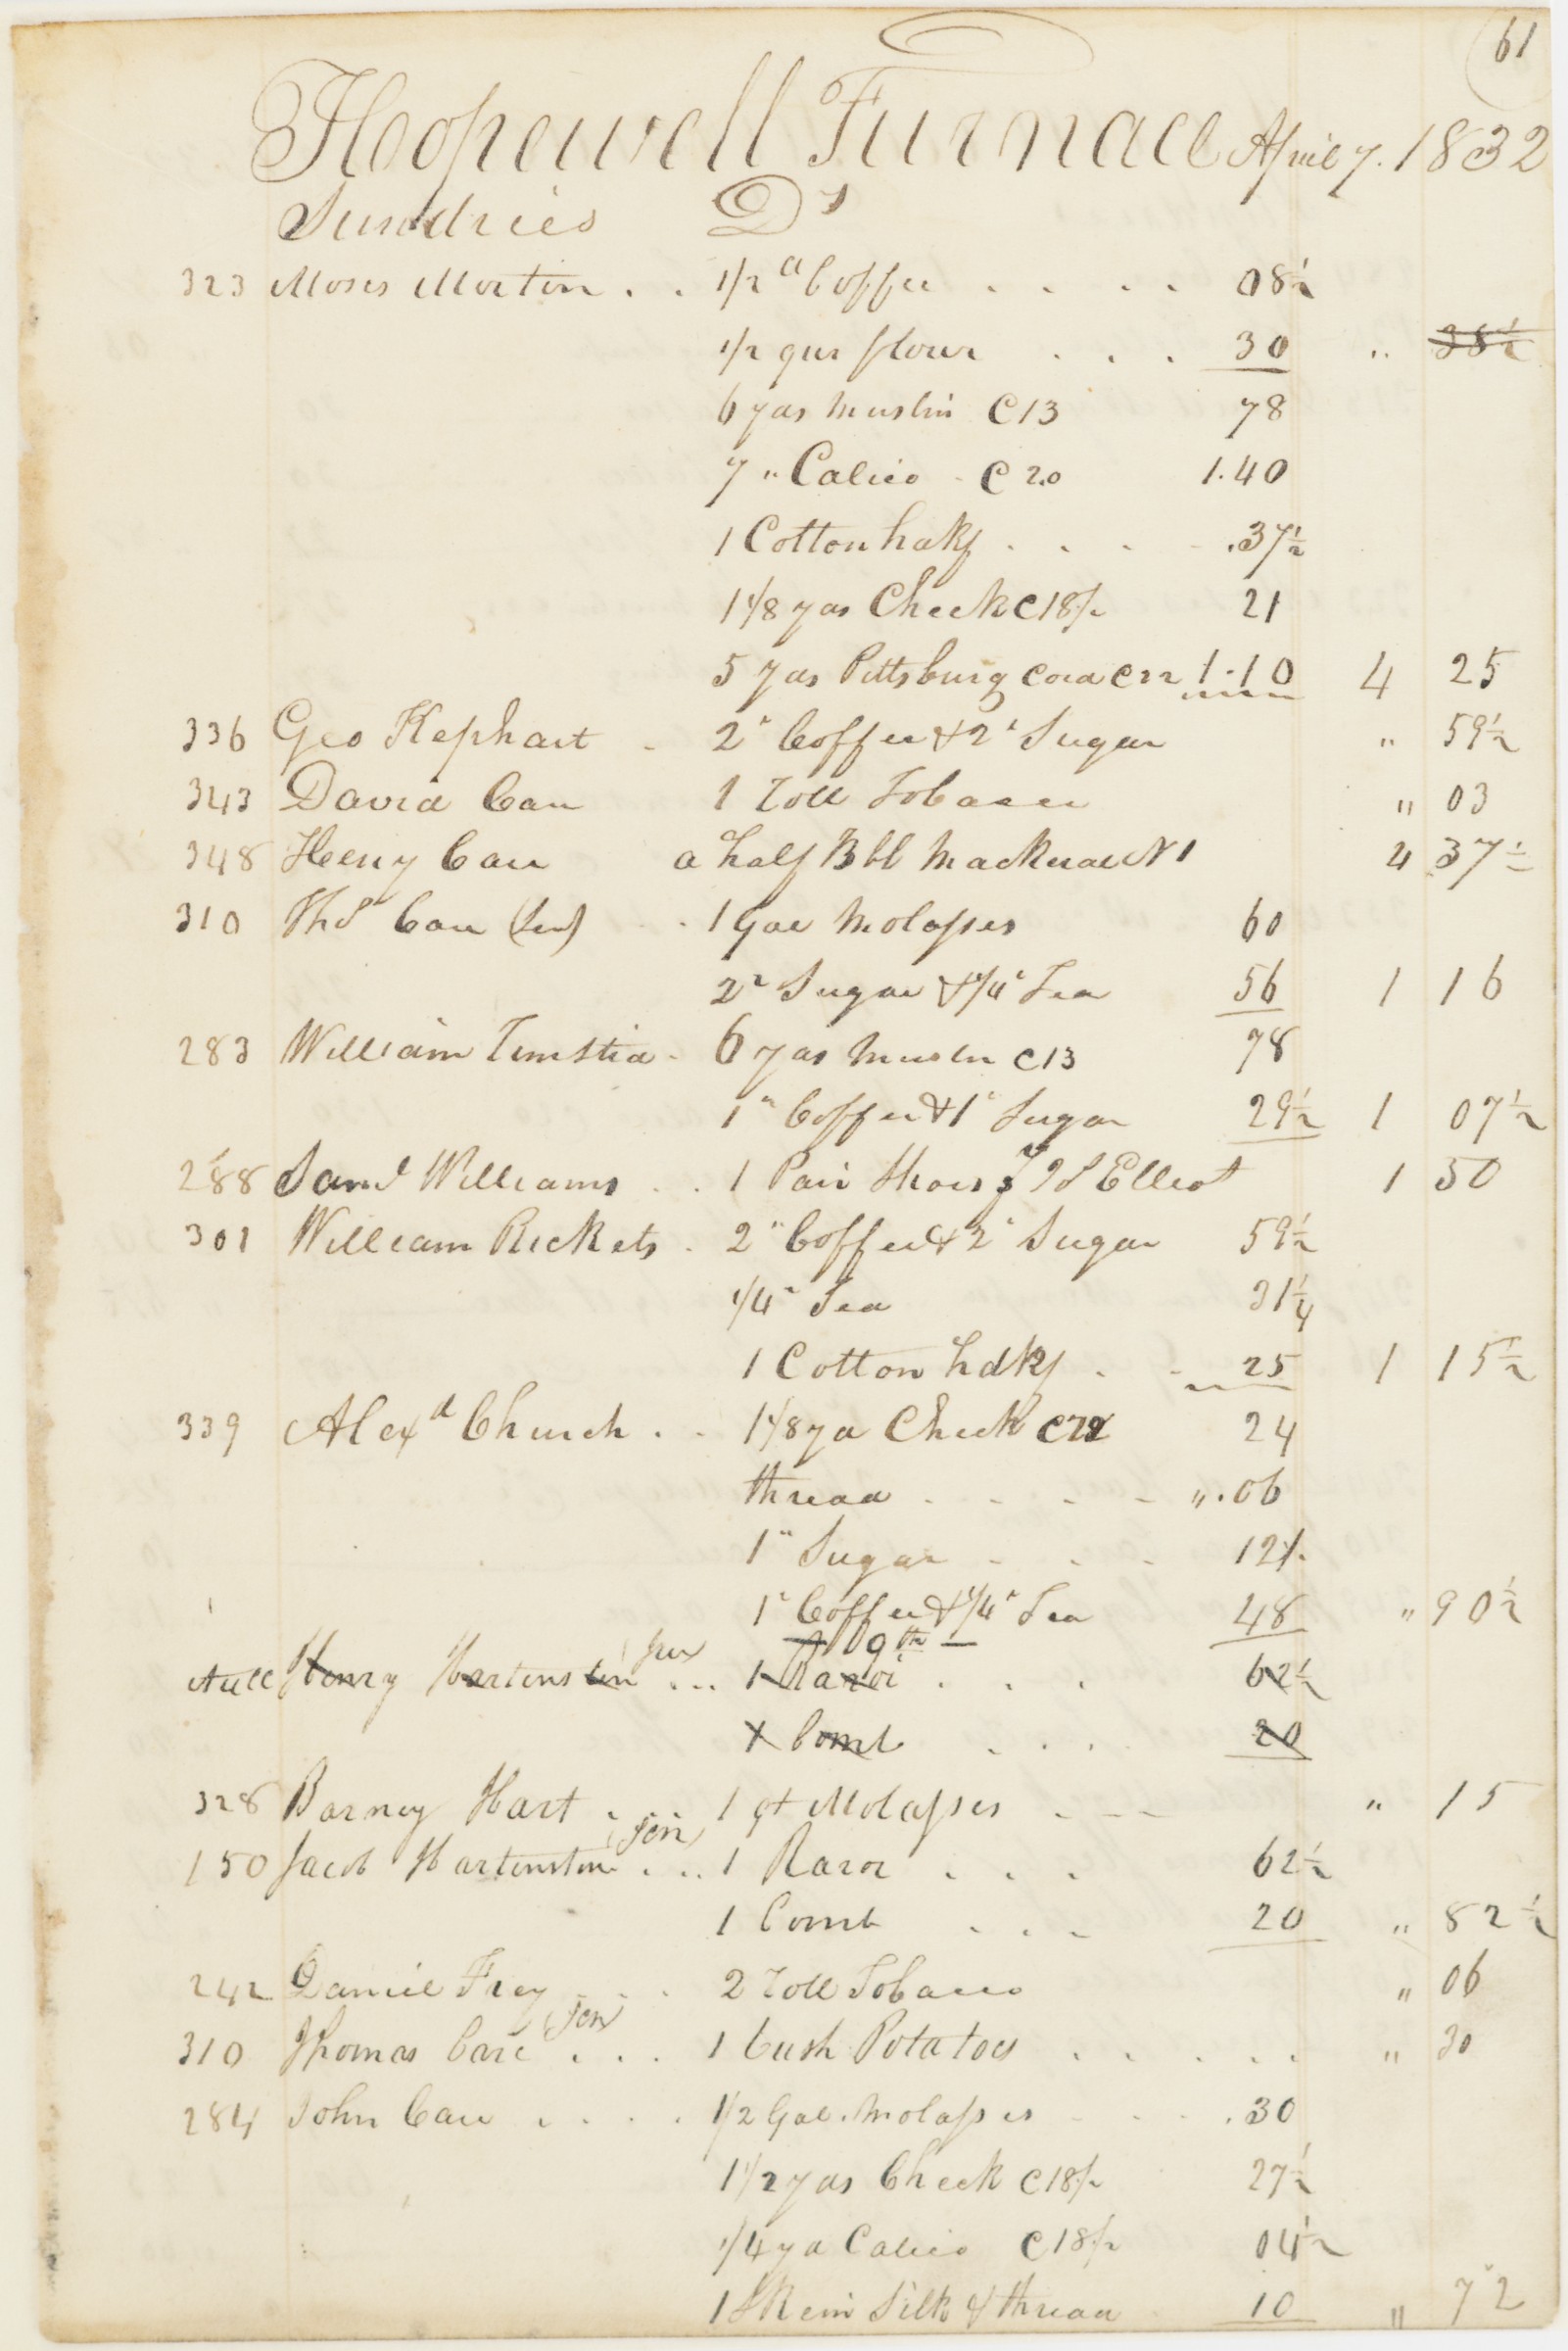 61
Hopewell Furnace April 7. 1832
Sundries Drs
323 Moses Morton . . 1/2 " Coffee . . . . 08 1/2
1/2 qur flour . . . 30 " 38 1/2
6 yds Muslin C13 78
7 " Calico - C 20 1.40
1 Cotton hdkf . . . .37 1/2
1 1/8 yds Check C18 1/2 21
5 yds Pittsburg Cord C22 1.10 4 25
336 Geo Kephart - 2" Coffee & 2" Sugar " 59 1/2
343 David Carr 1 Roll Tobacco " 03
348 Henry Carr a half Bbl Mackerael N 1 4 37 1/2
310 Ths Carr (Sen) . 1 Gal Molasses 60
2" Sugar & 1/4" Tea 56 1 16
283 William - 6 yds Muslin C13 78
1" Coffee & 1" Sugar 29 1/2 1 07 1/2
288 Saml Williams . . 1 Pair Shoes Elliot 1 50
301 William Rickets . 2" Coffee & 2" Sugar 59 1/2
1/4" Tea 31 1/4
1 Cotton hdkf . - 25 1 15 1/2
339 Alexd Church . . 1 1/8 yd Check C22 24
thread . - - - " .06
1" Sugar - . . 12 1/2
1" Coffee & 1/4" Tea 48 " 90 1/2
— 9th —
Henry Hartenstin Jun ... 1 Razor . . . 62 1/2
1 Comb . . . 20
328 Barney Hart . . . 1 qt Molasses . - - " 15
150 Jacob Hartenstine (Sen) . . . 1 Razor . . . 62 1/2
1 Comb . . . 20 " 82 1/2
242 Daniel Frey . . 2 Roll Tobacco " 06
310 Thomas Care (Sen) . . . 1 bush Potatoes . . . . . " 30
284 John Carr . . . . 1/2 Gal. Molasses - . . .30
1 1/2 yds Check C18 1/2 27 1/2
1/4 yd Calico C18 1/2 04 1/2
1 Skein Silk & thread 10 " 72